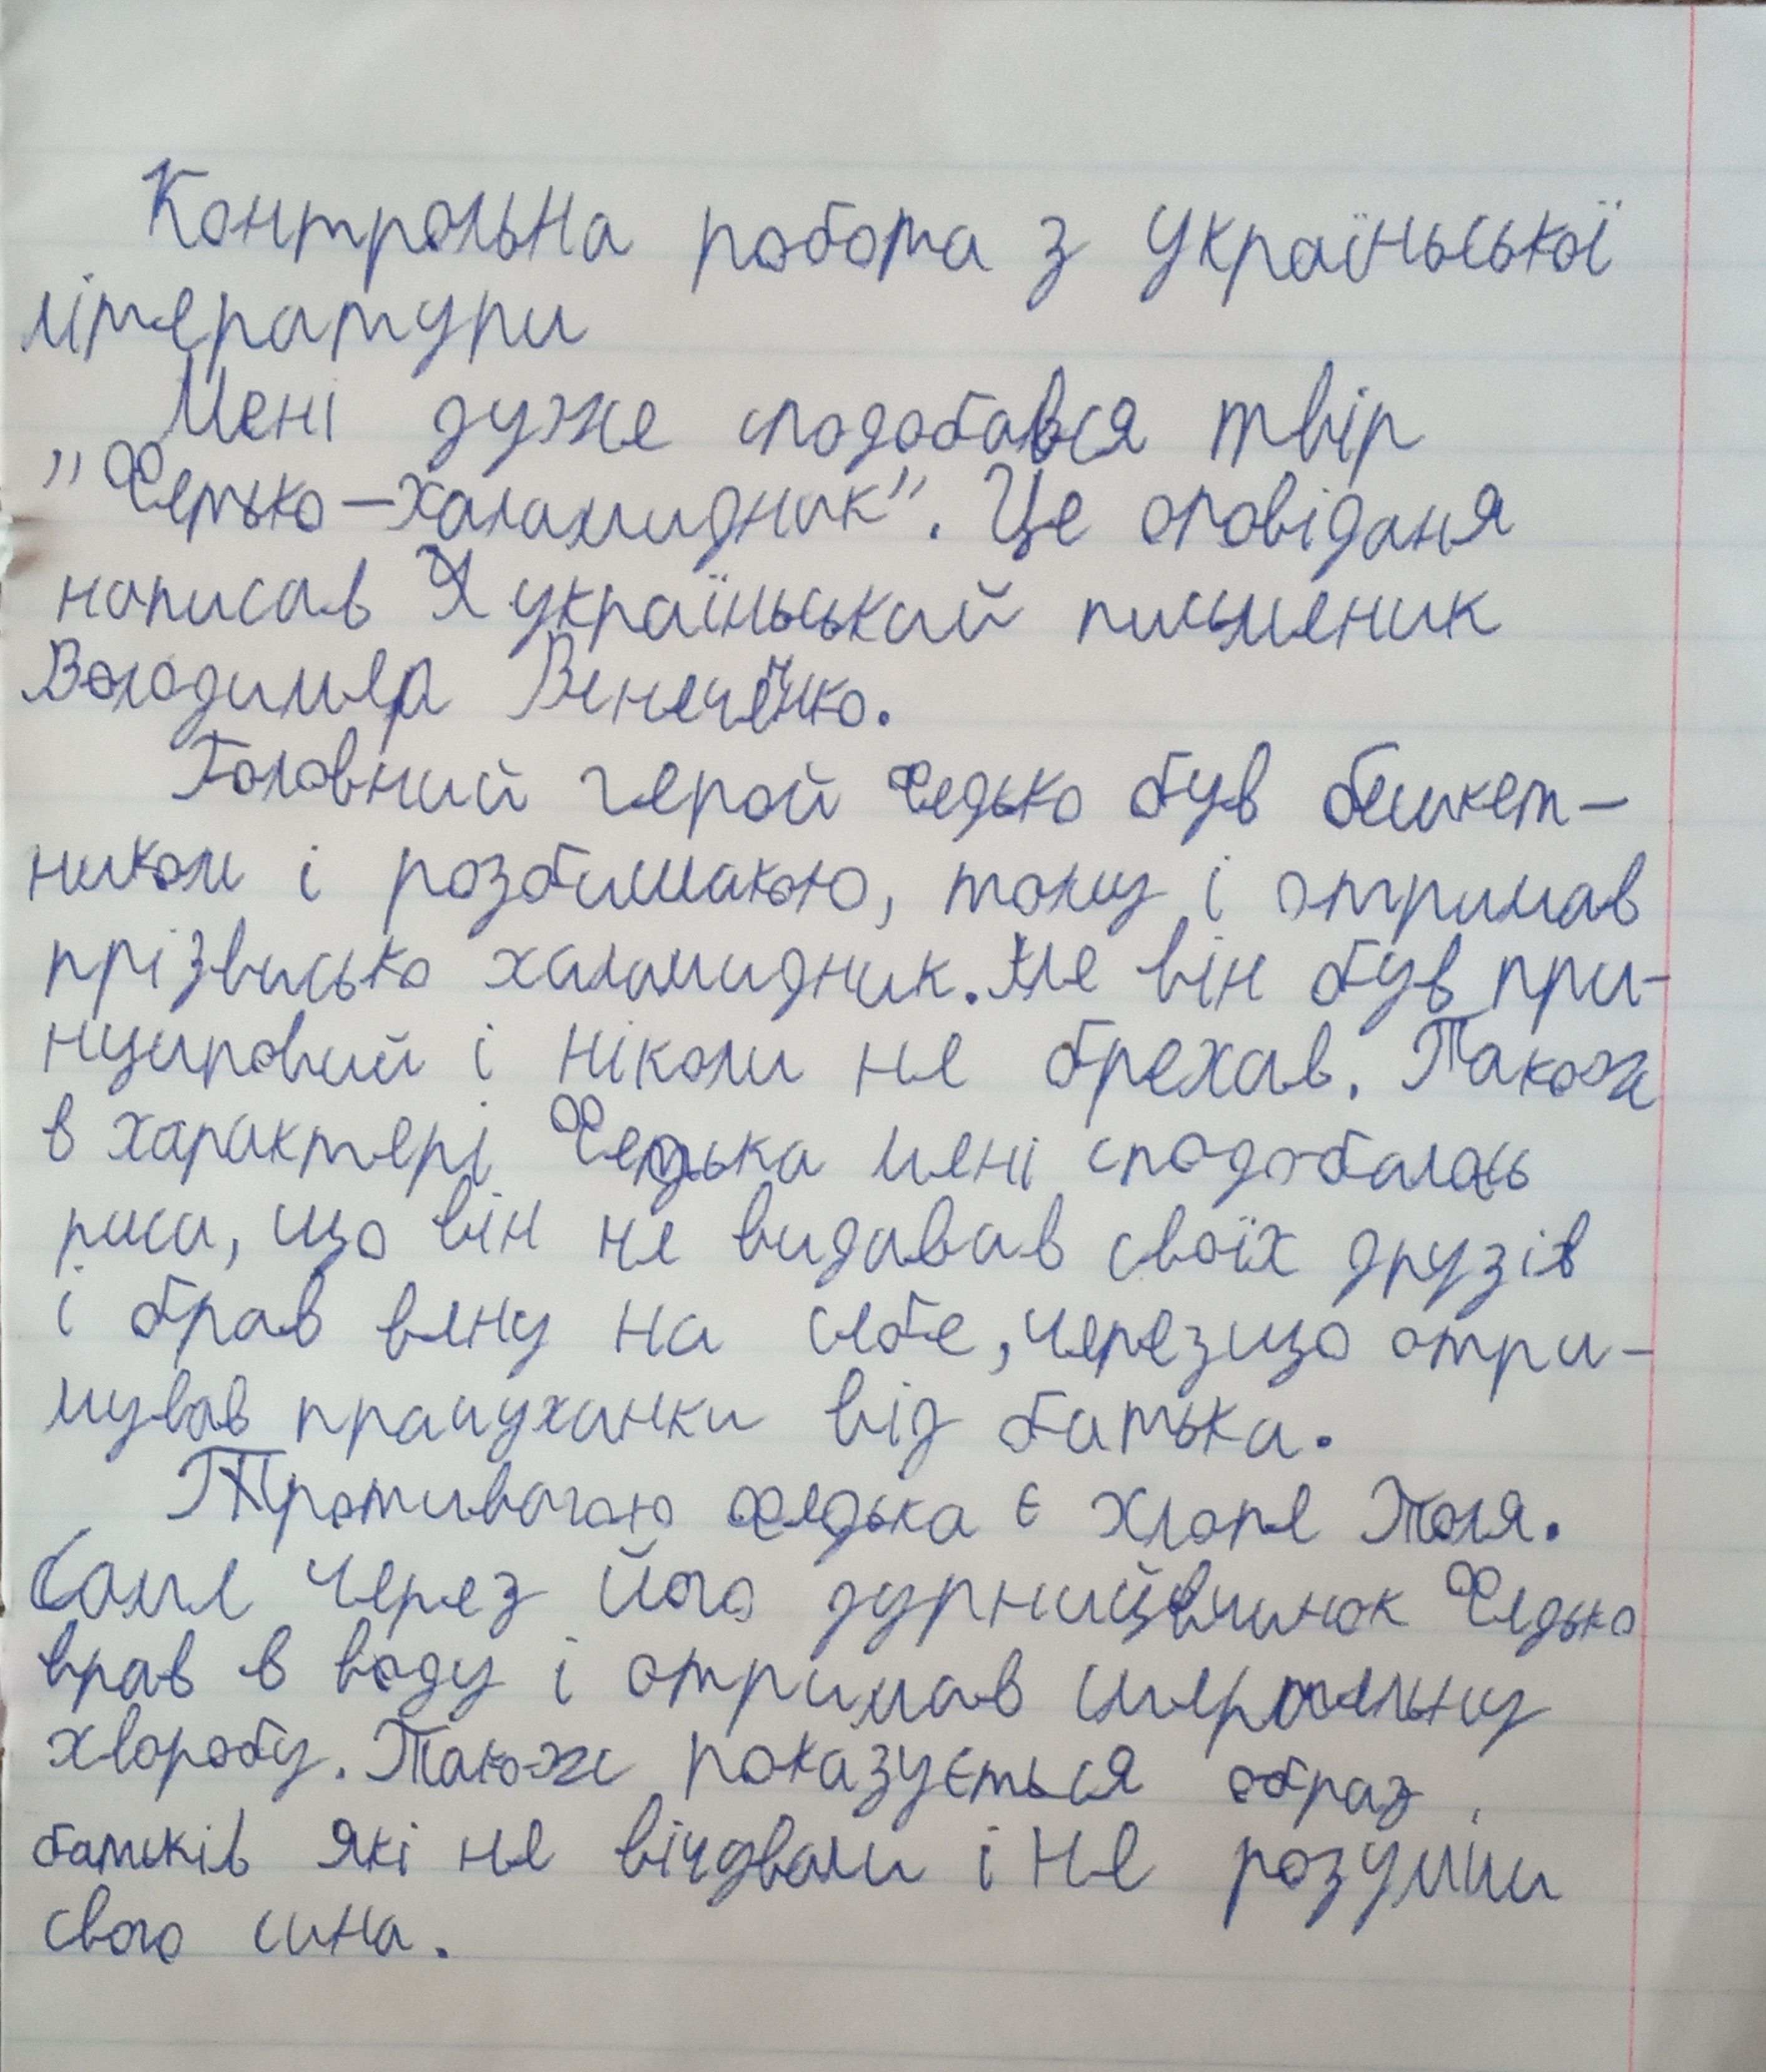 Контрольна робота з україньської
літератури
Мені дуже сподобався твір
"Федько-халамидник". Це оповіданя
написав україньський письменик
Володимер Венечёнко.
Головний герой Федько був бешкет-
ником і розбишакою, тому і отримав
прізвисько халамидник. Але він був при-
нциповий і ніколи не брехав. Також
в характері Федька мені сподобалась
риса, що він не видавав своїх друзів
і брав вену на себе, черезщо отри-
мував прачуханки від батька.
Противагою Федька є хлопе Толя.
Саме через його дурний вчинок Федько
врав в воду і отримав смертельну
хворобу. Також показується образ
батьків які не вічдвали і не розуміли
свого сина.